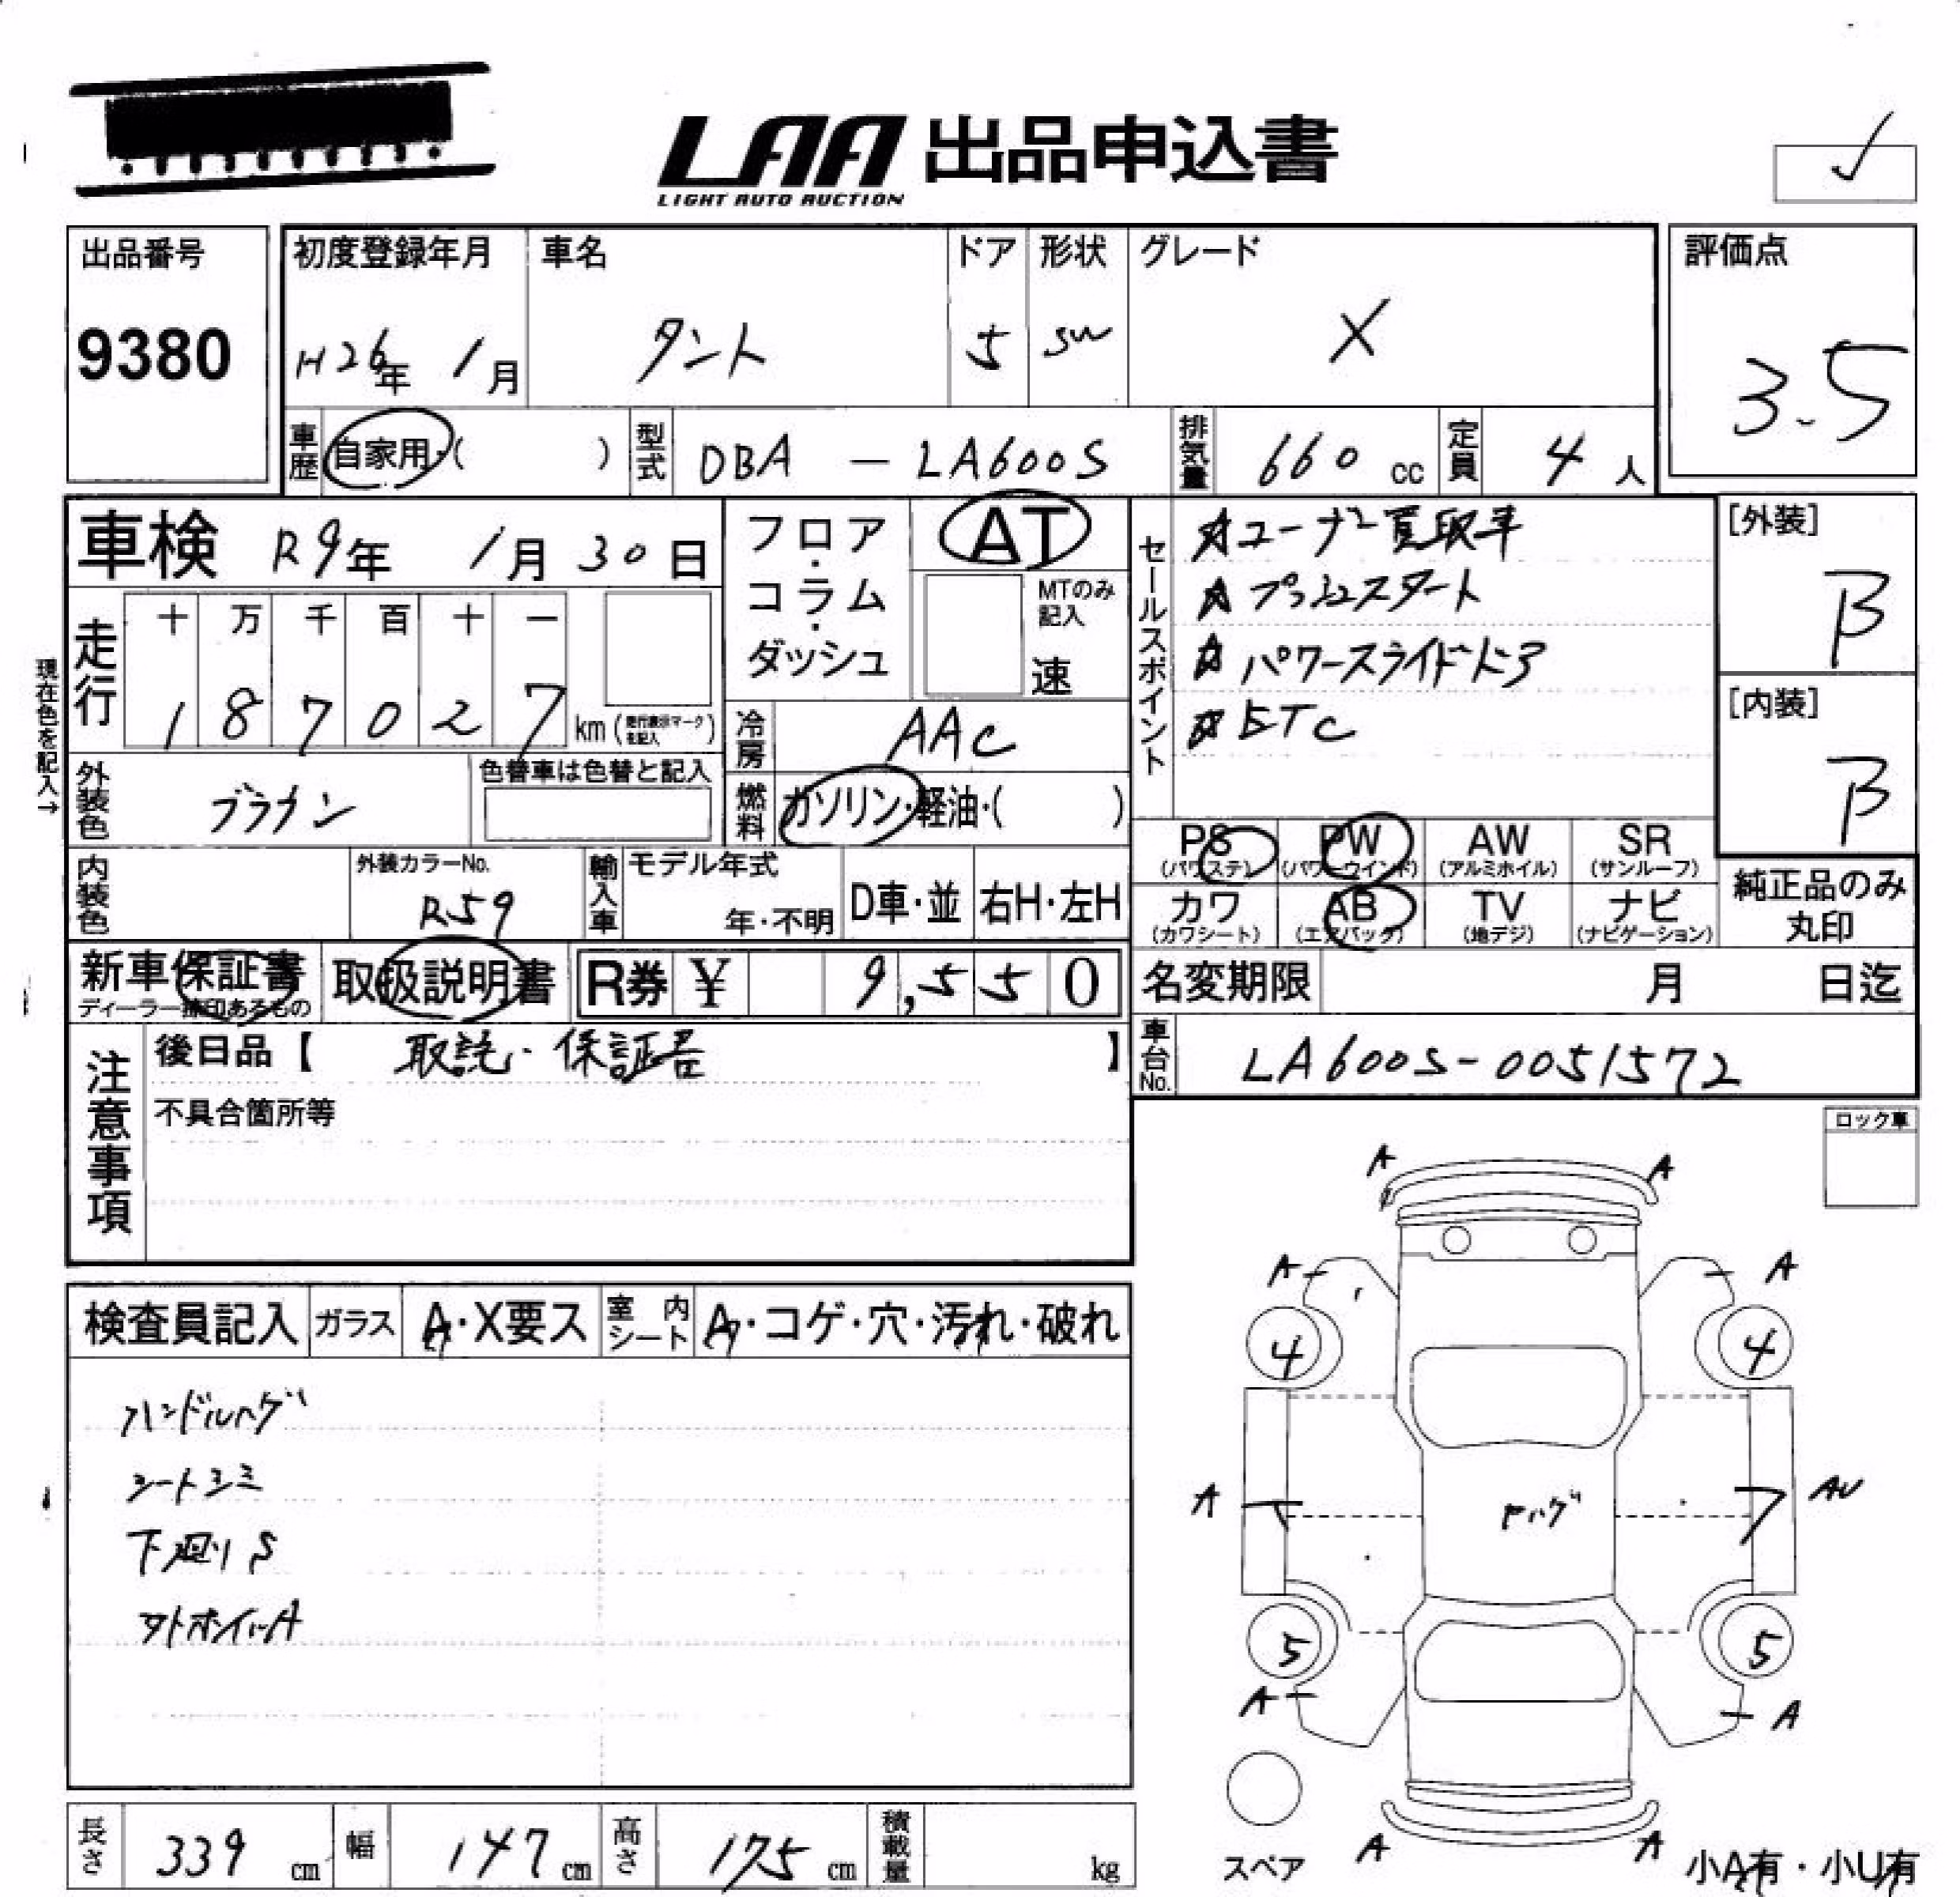 LAA 出品申込書
LIGHT AUTO AUCTION
出品番号
9380
初度登録年月
H26年 1月
車名
タント
ドア
5
形状
SW
グレード
X
評価点
3.5
車歴 自家用・( )
型式 DBA - LA600S
排気量 660 cc
定員 4 人
車検 R9年 1月 30日
フロア・コラム・ダッシュ
AT
MTのみ記入
速
セールスポイント
ユーザー買取車
プッシュスタート
パワースライドドア
ETC
[外装]
B
[内装]
B
現在色を記入→
走行
十 万 千 百 十 一
1 8 7 0 2 7 km (走行表示マークを記入)
冷房 AAC
外装色 ブラウン
色替車は色替と記入
燃料 ガソリン・軽油・( )
PS (パワステ)
PW (パワーウインド)
AW (アルミホイル)
SR (サンルーフ)
カワ (カワシート)
AB (エアバッグ)
TV (地デジ)
ナビ (ナビゲーション)
純正品のみ丸印
内装色
外装カラーNo.
R59
輸入車
モデル年式
年・不明
D車・並
右H・左H
新車保証書
ディーラー捺印あるもの
取扱説明書
R券 ¥ 9,550
名変期限 月 日迄
注意事項
後日品【 取説・保証書 】
不具合箇所等
車台No. LA600S-0051572
ロック車
検査員記入
ガラス A・X要ス
室内シート A・コゲ・穴・汚れ・破れ
ハンドルハゲ
シートシミ
下廻りS
外ホイルA
A A
A A
4 4
A AU
ヤハゲ
5 5
A A
A A
スペア
小A有・小U有
長さ 339 cm
幅 147 cm
高さ 175 cm
積載量 kg